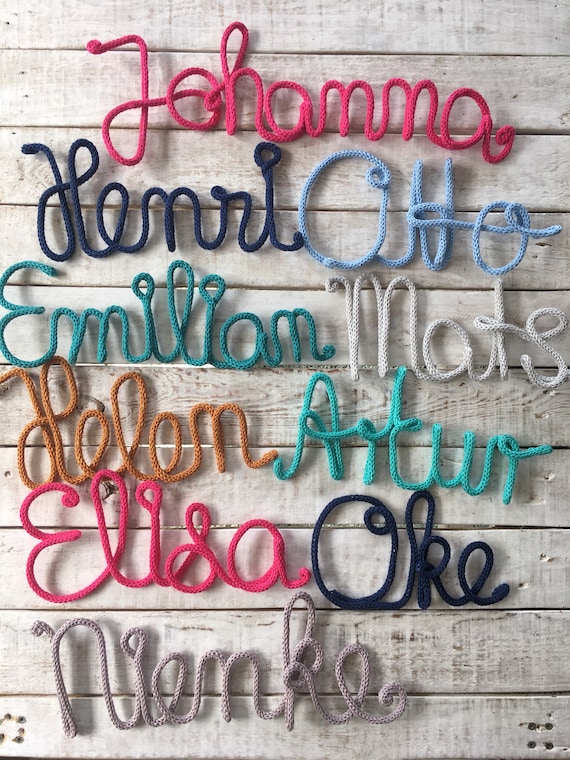 Johanna
Henri Otto
Emilian Mats
Helen Artur
Elisa Oke
Nienke